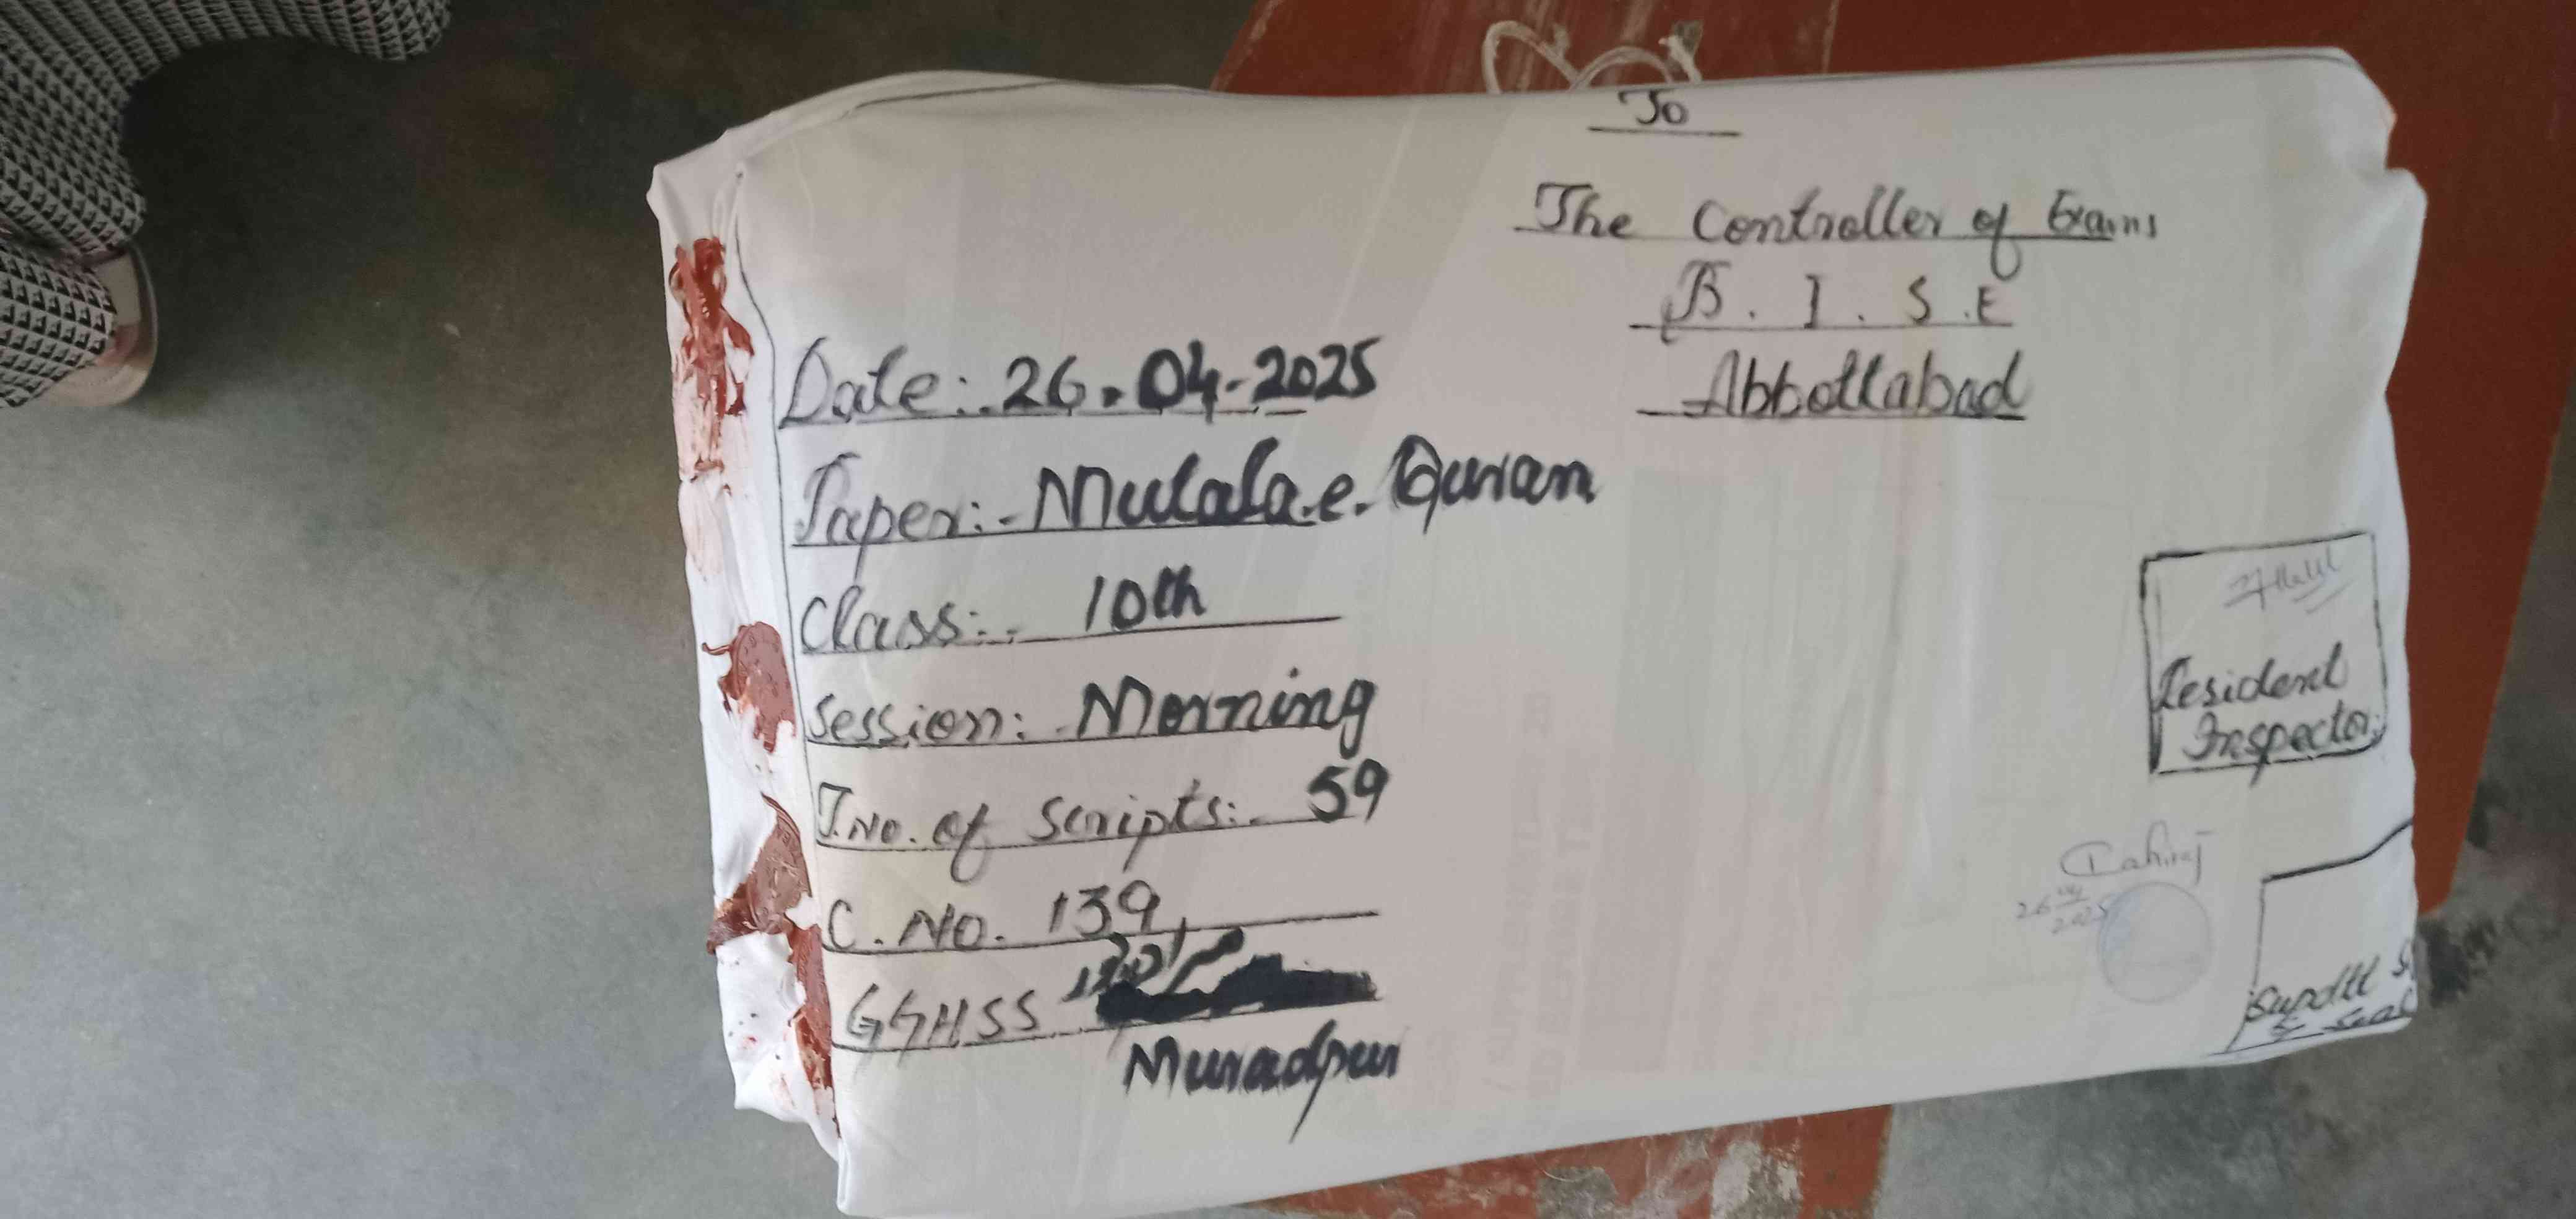 To
The Controller of Exams
B. I. S. E
Abbottabad
Date:. 26.04-2025
Paper:- Mutala.e. Quran
Class:- 10th
Session:- Morning
T.No. of Scripts:- 59
C. No. 139
GGHSS
Muradpur
Resident
Inspector
26 04 2025
Supdtt
& Seal